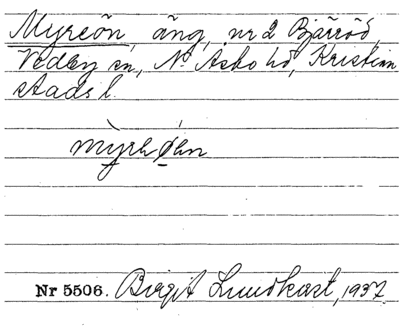 Myreön, äng, nr 2 Bjärröd,
Vedby sn, N. Åsbo hd, Kristian
stads l.
Nr 5506. Birgit Lundkvist, 1937.